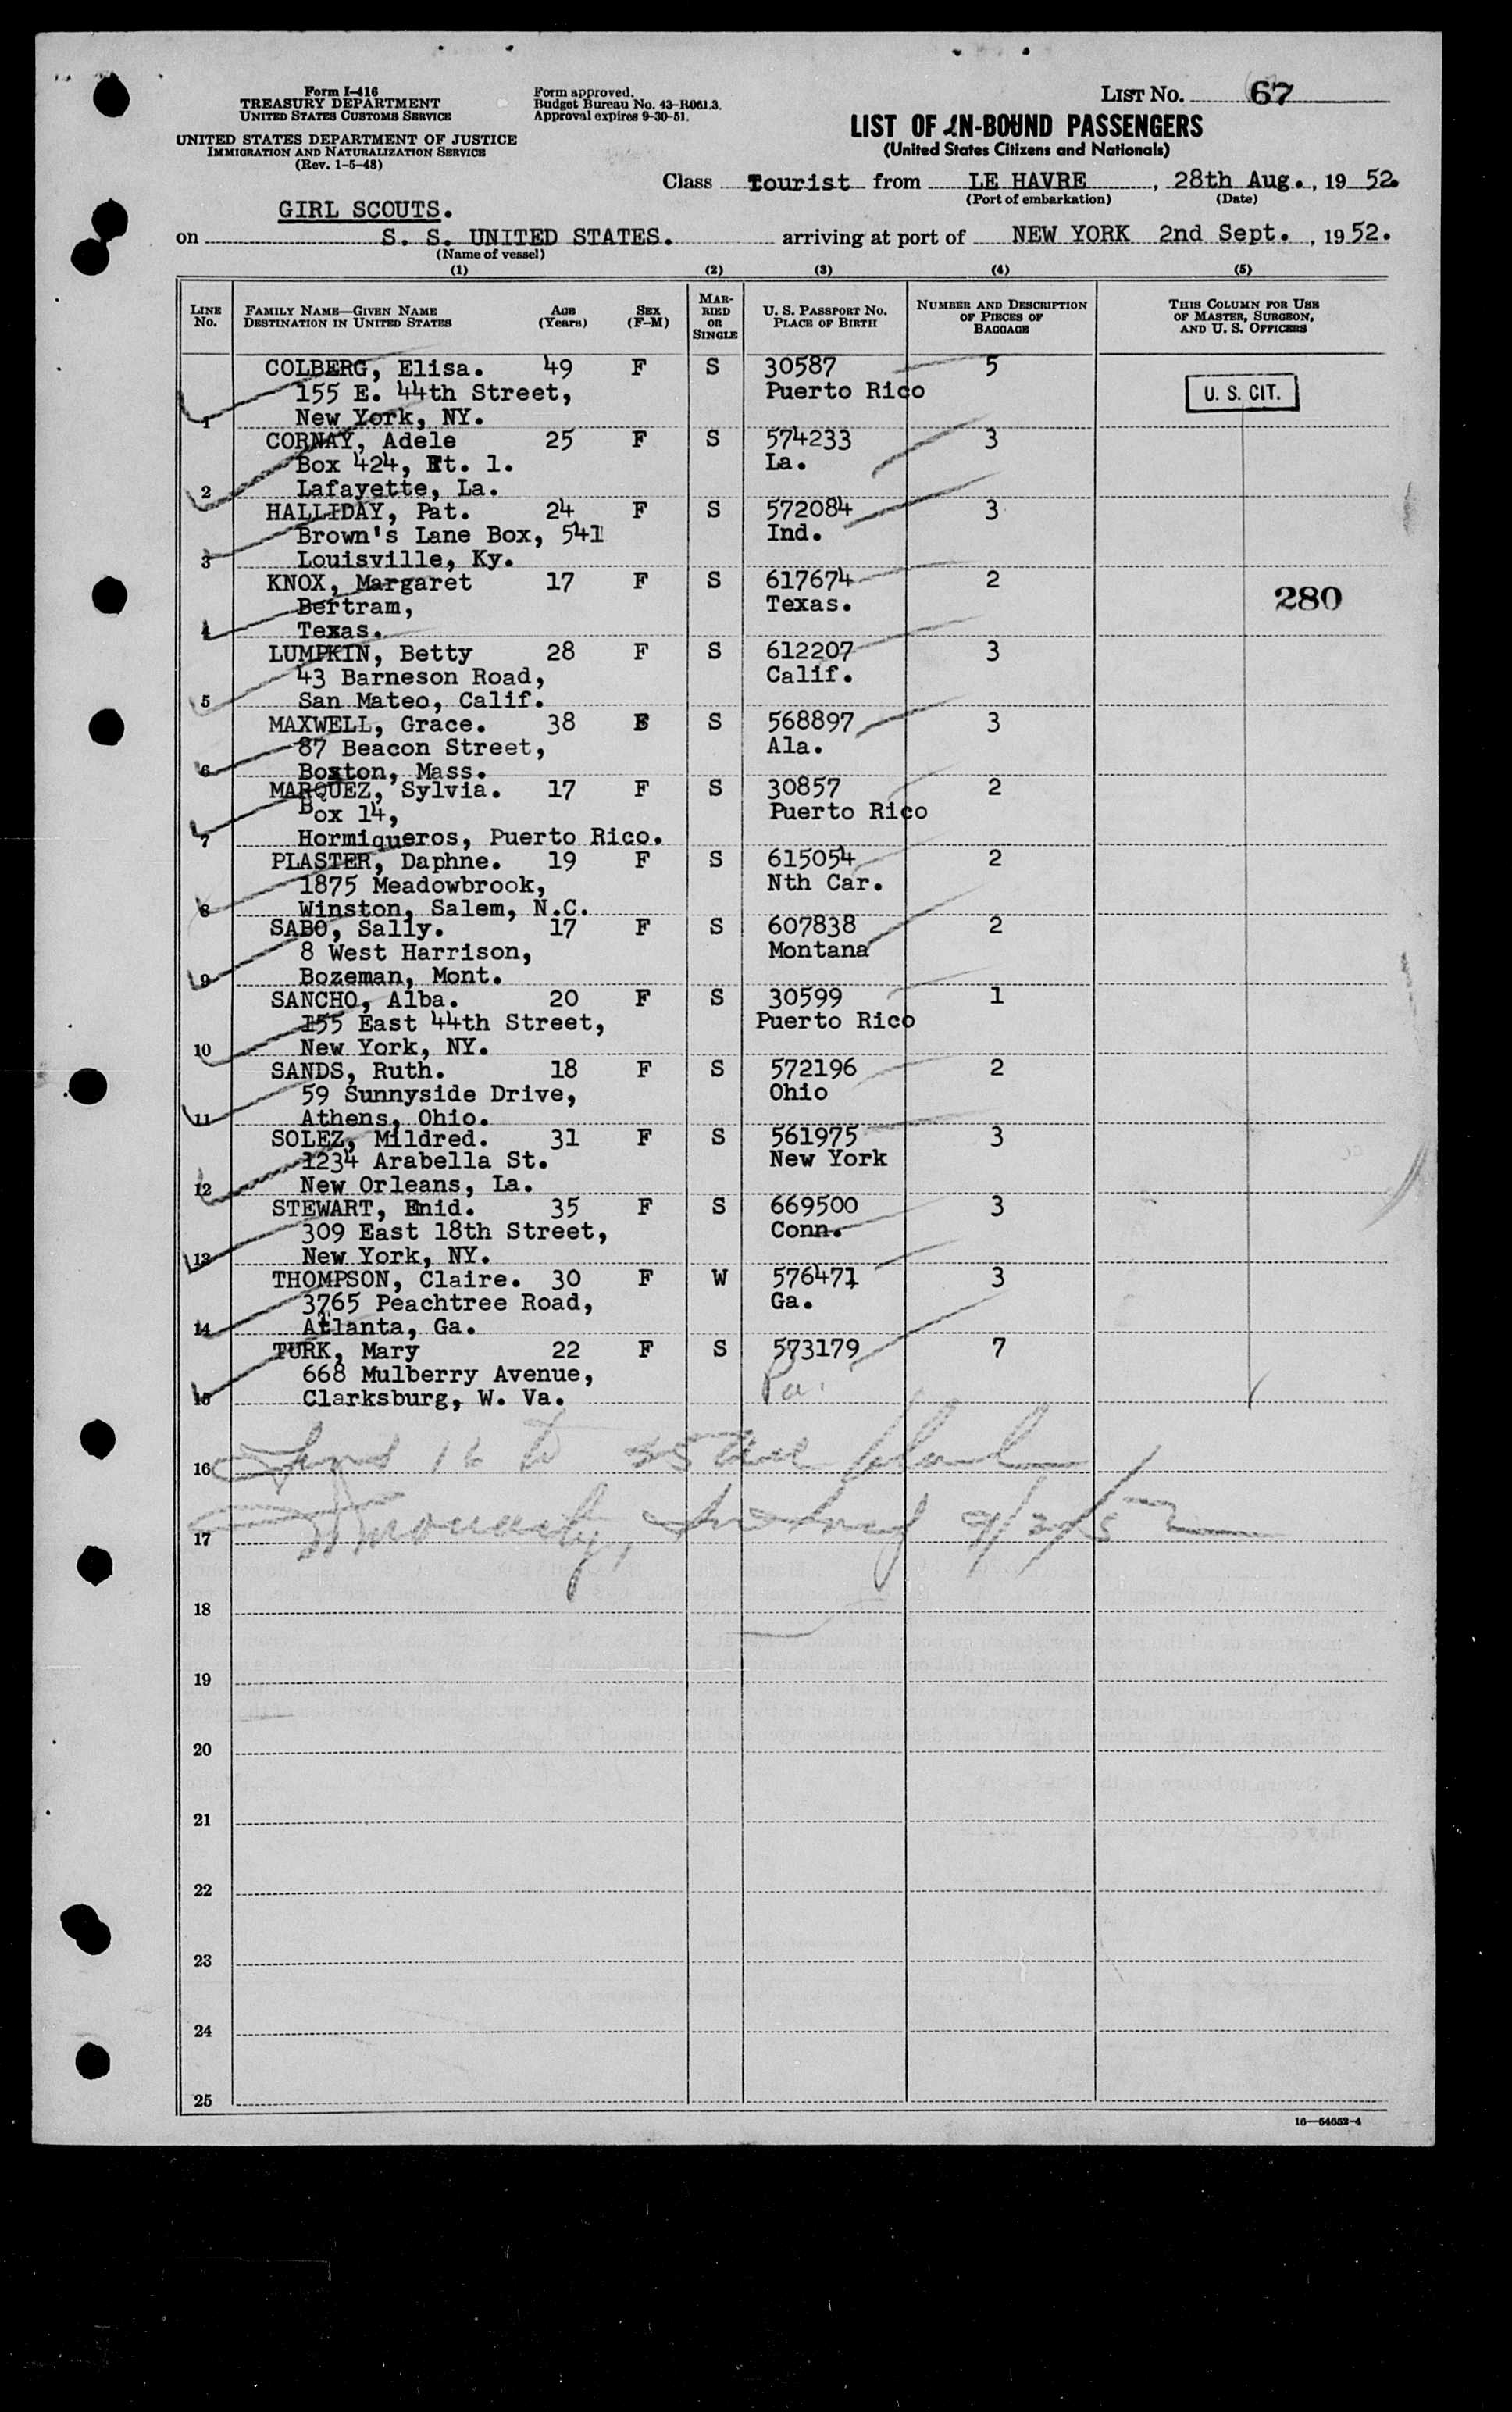 Form I-416
TREASURY DEPARTMENT
UNITED STATES CUSTOMS SERVICE
UNITED STATES DEPARTMENT OF JUSTICE
IMMIGRATION AND NATURALIZATION SERVICE
(Rev. 1-5-48)
Form approved.
Budget Bureau No. 43-R061.3.
Approval expires 9-30-51.
LIST NO. 67
LIST OF IN-BOUND PASSENGERS
(United States Citizens and Nationals)
Class Tourist from LE HAVRE, 28th Aug., 1952.
(Port of embarkation) (Date)
GIRL SCOUTS.
on S. S. UNITED STATES. arriving at port of NEW YORK 2nd Sept., 1952.
(Name of vessel)
(1) (2) (3) (4) (5)
LINE NO. FAMILY NAME—GIVEN NAME DESTINATION IN UNITED STATES AGE (Years) SEX (F-M) MARRIED OR SINGLE U. S. PASSPORT NO. PLACE OF BIRTH NUMBER AND DESCRIPTION OF PIECES OF BAGGAGE THIS COLUMN FOR USE OF MASTER, SURGEON, AND U. S. OFFICERS
COLBERG, Elisa. 49 F S 30587 5
155 E. 44th Street, Puerto Rico U. S. CIT.
1 New York, NY.
CORNAY, Adele 25 F S 574233 3
Box 424, Rt. 1. La.
2 Lafayette, La.
HALLIDAY, Pat. 24 F S 572084 3
Brown's Lane Box, 541 Ind.
3 Louisville, Ky.
KNOX, Margaret 17 F S 617674 2
Bertram, Texas. 280
4 Texas.
LUMPKIN, Betty 28 F S 612207 3
43 Barneson Road, Calif.
5 San Mateo, Calif.
MAXWELL, Grace. 38 F S 568897 3
87 Beacon Street, Ala.
6 Boston, Mass.
MARQUEZ, Sylvia. 17 F S 30857 2
Box 14, Puerto Rico
7 Hormiqueros, Puerto Rico.
PLASTER, Daphne. 19 F S 615054 2
1875 Meadowbrook, Nth Car.
8 Winston, Salem, N.C.
SABO, Sally. 17 F S 607838 2
8 West Harrison, Montana
9 Bozeman, Mont.
SANCHO, Alba. 20 F S 30599 1
155 East 44th Street, Puerto Rico
10 New York, NY.
SANDS, Ruth. 18 F S 572196 2
59 Sunnyside Drive, Ohio
11 Athens, Ohio.
SOLEZ, Mildred. 31 F S 561975 3
1234 Arabella St. New York
12 New Orleans, La.
STEWART, Enid. 35 F S 669500 3
309 East 18th Street, Conn.
13 New York, NY.
THOMPSON, Claire. 30 F W 576471 3
3765 Peachtree Road, Ga.
14 Atlanta, Ga.
TURK, Mary 22 F S 573179 7
668 Mulberry Avenue, Pa.
15 Clarksburg, W. Va.
16 16 to
17 9/2/52
18
19
20
21
22
23
24
25
16—54652-4